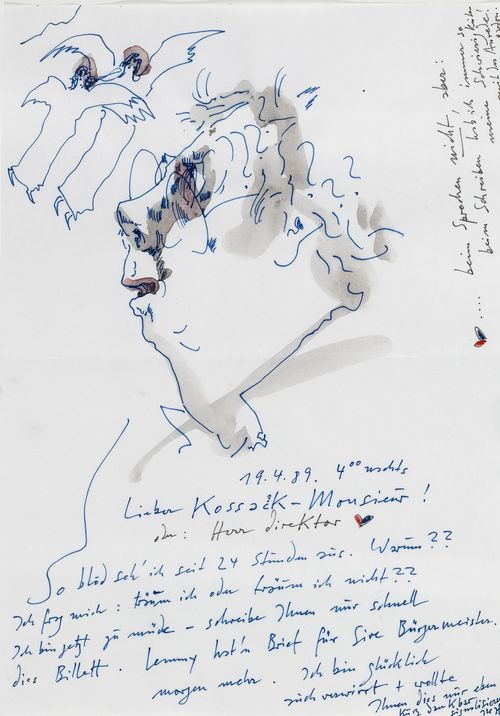 19.4.89. 4⁰⁰ nachts
Lieber Kossack-Monsieur!
oder: Herr Direktor
So blöd seh' ich seit 24 Stunden aus. Warum??
Ich frag mich: träum ich oder träum ich nicht??
Ich bin jetzt zu müde – schreibe Ihnen nur schnell
dies Billett. Lemmy hat'n Brief für Sire Bürgermeister.
morgen mehr. Ich bin glücklich
auch verwirrt + wollte
Ihnen dies nur eben
.... beim Sprechen nicht, aber:
beim Schreiben hab ich immer so
meine Schwierigkeiten
mit der Anrede!